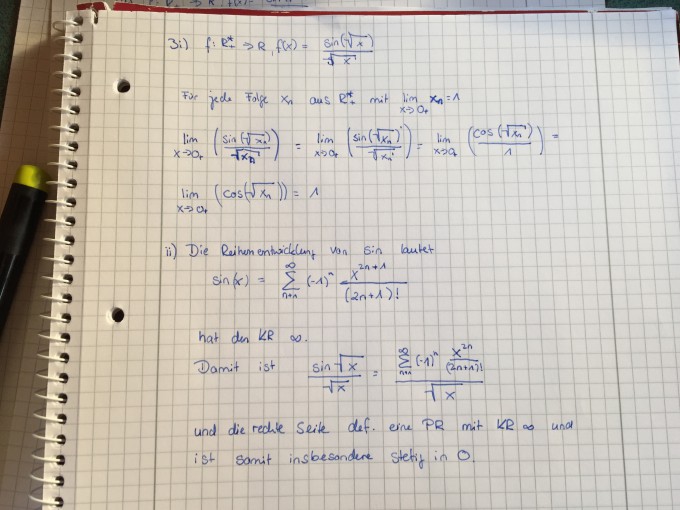 3i) f: R*+ → R, f(x) = sin(√x) / √x
Für jede Folge xn aus R*+ mit lim x→0+ xn = 1
lim x→0+ (sin(√xn) / √xn) = lim x→0+ (sin(√xn)' / √xn') = lim x→0+ (cos(√xn) / 1) =
lim x→0+ (cos(√xn)) = 1
ii) Die Reihenentwicklung von sin lautet
sin(x) = ∑ n=1 ∞ (-1)^n x^(2n+1) / (2n+1)!
hat den KR ∞.
Damit ist sin√x / √x = ∑ n=1 ∞ (-1)^n x^(2n) / (2n+1)! / √x
und die rechte Seite def. eine PR mit KR ∞ und
ist somit insbesondere stetig in 0.